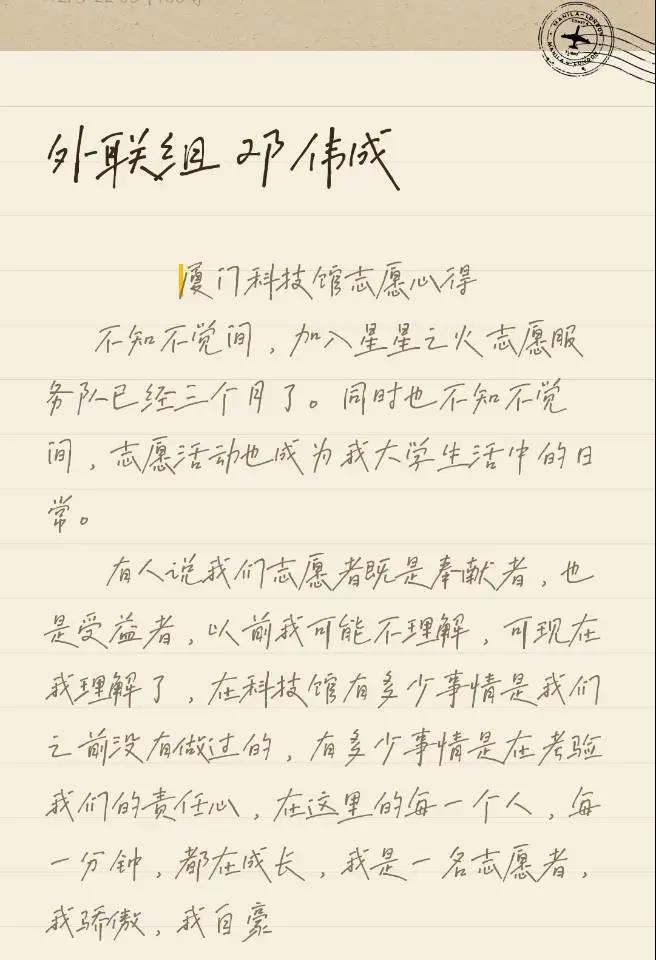 外联组 邓伟成
厦门科技馆志愿心得
不知不觉间，加入星星之火志愿服
务队已经三个月了。同时也不知不觉
间，志愿活动也成为我大学生活中的日
常。
有人说我们志愿者既是奉献者，也
是受益者，以前我可能不理解，可现在
我理解了，在科技馆有多少事情是我们
之前没有做过的，有多少事情是在考验
我们的责任心，在这里的每一个人，每
一分钟，都在成长，我是一名志愿者，
我骄傲，我自豪